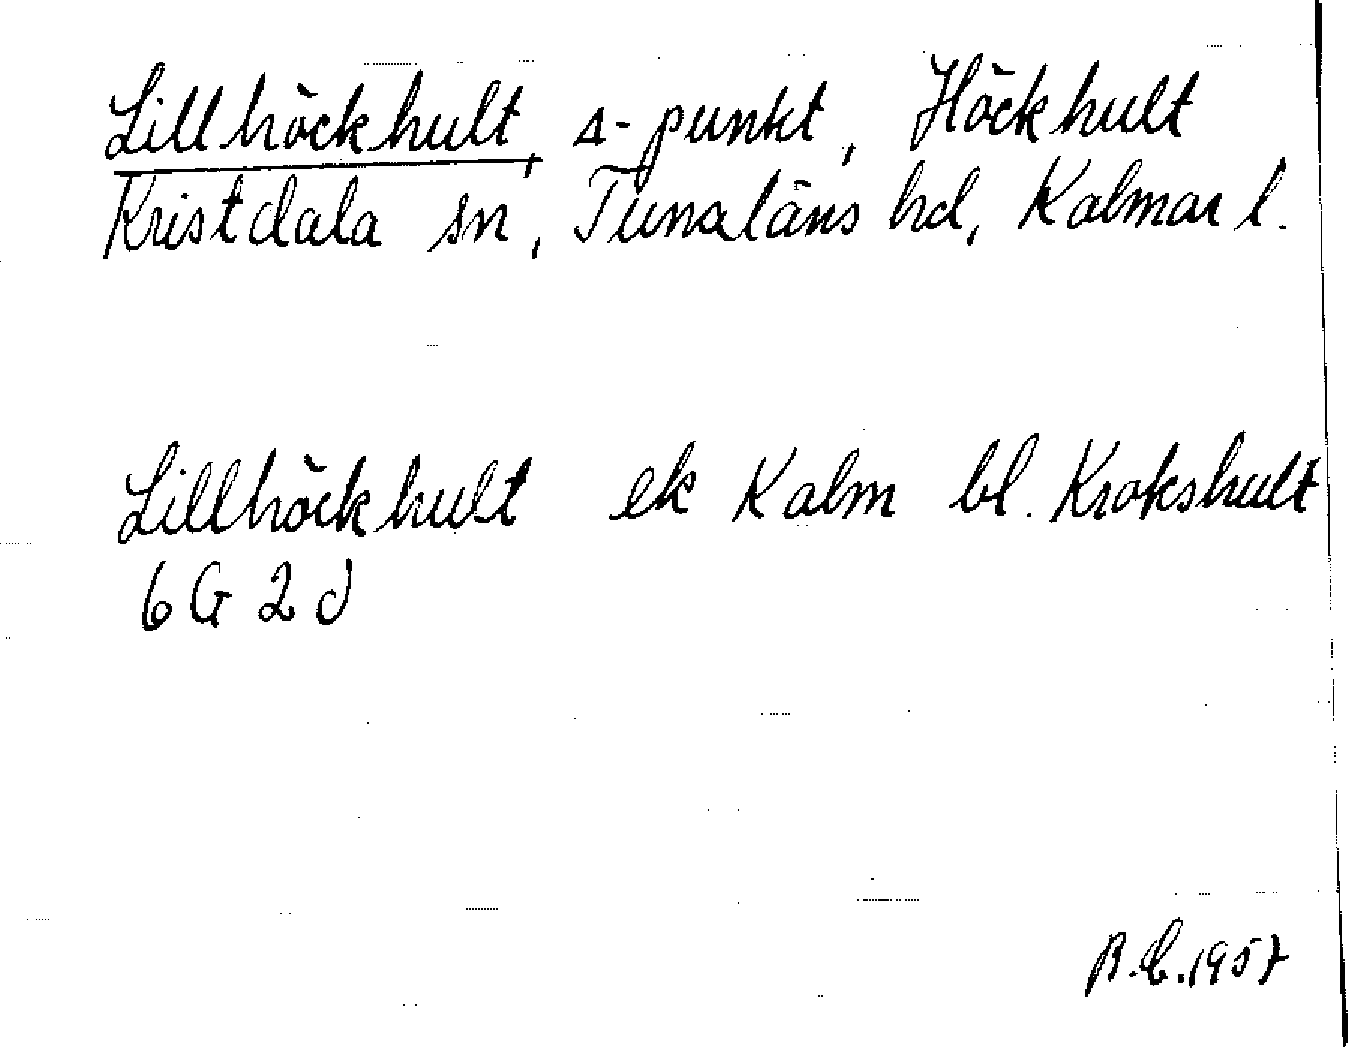 Lillhöckhult, s-punkt, Höckhult
Kristdala sn, Tunaläns hd, Kalmar l.
Lillhöckhult ek Kalm bl. Krokshult
6 G 2 d
B.E. 1957